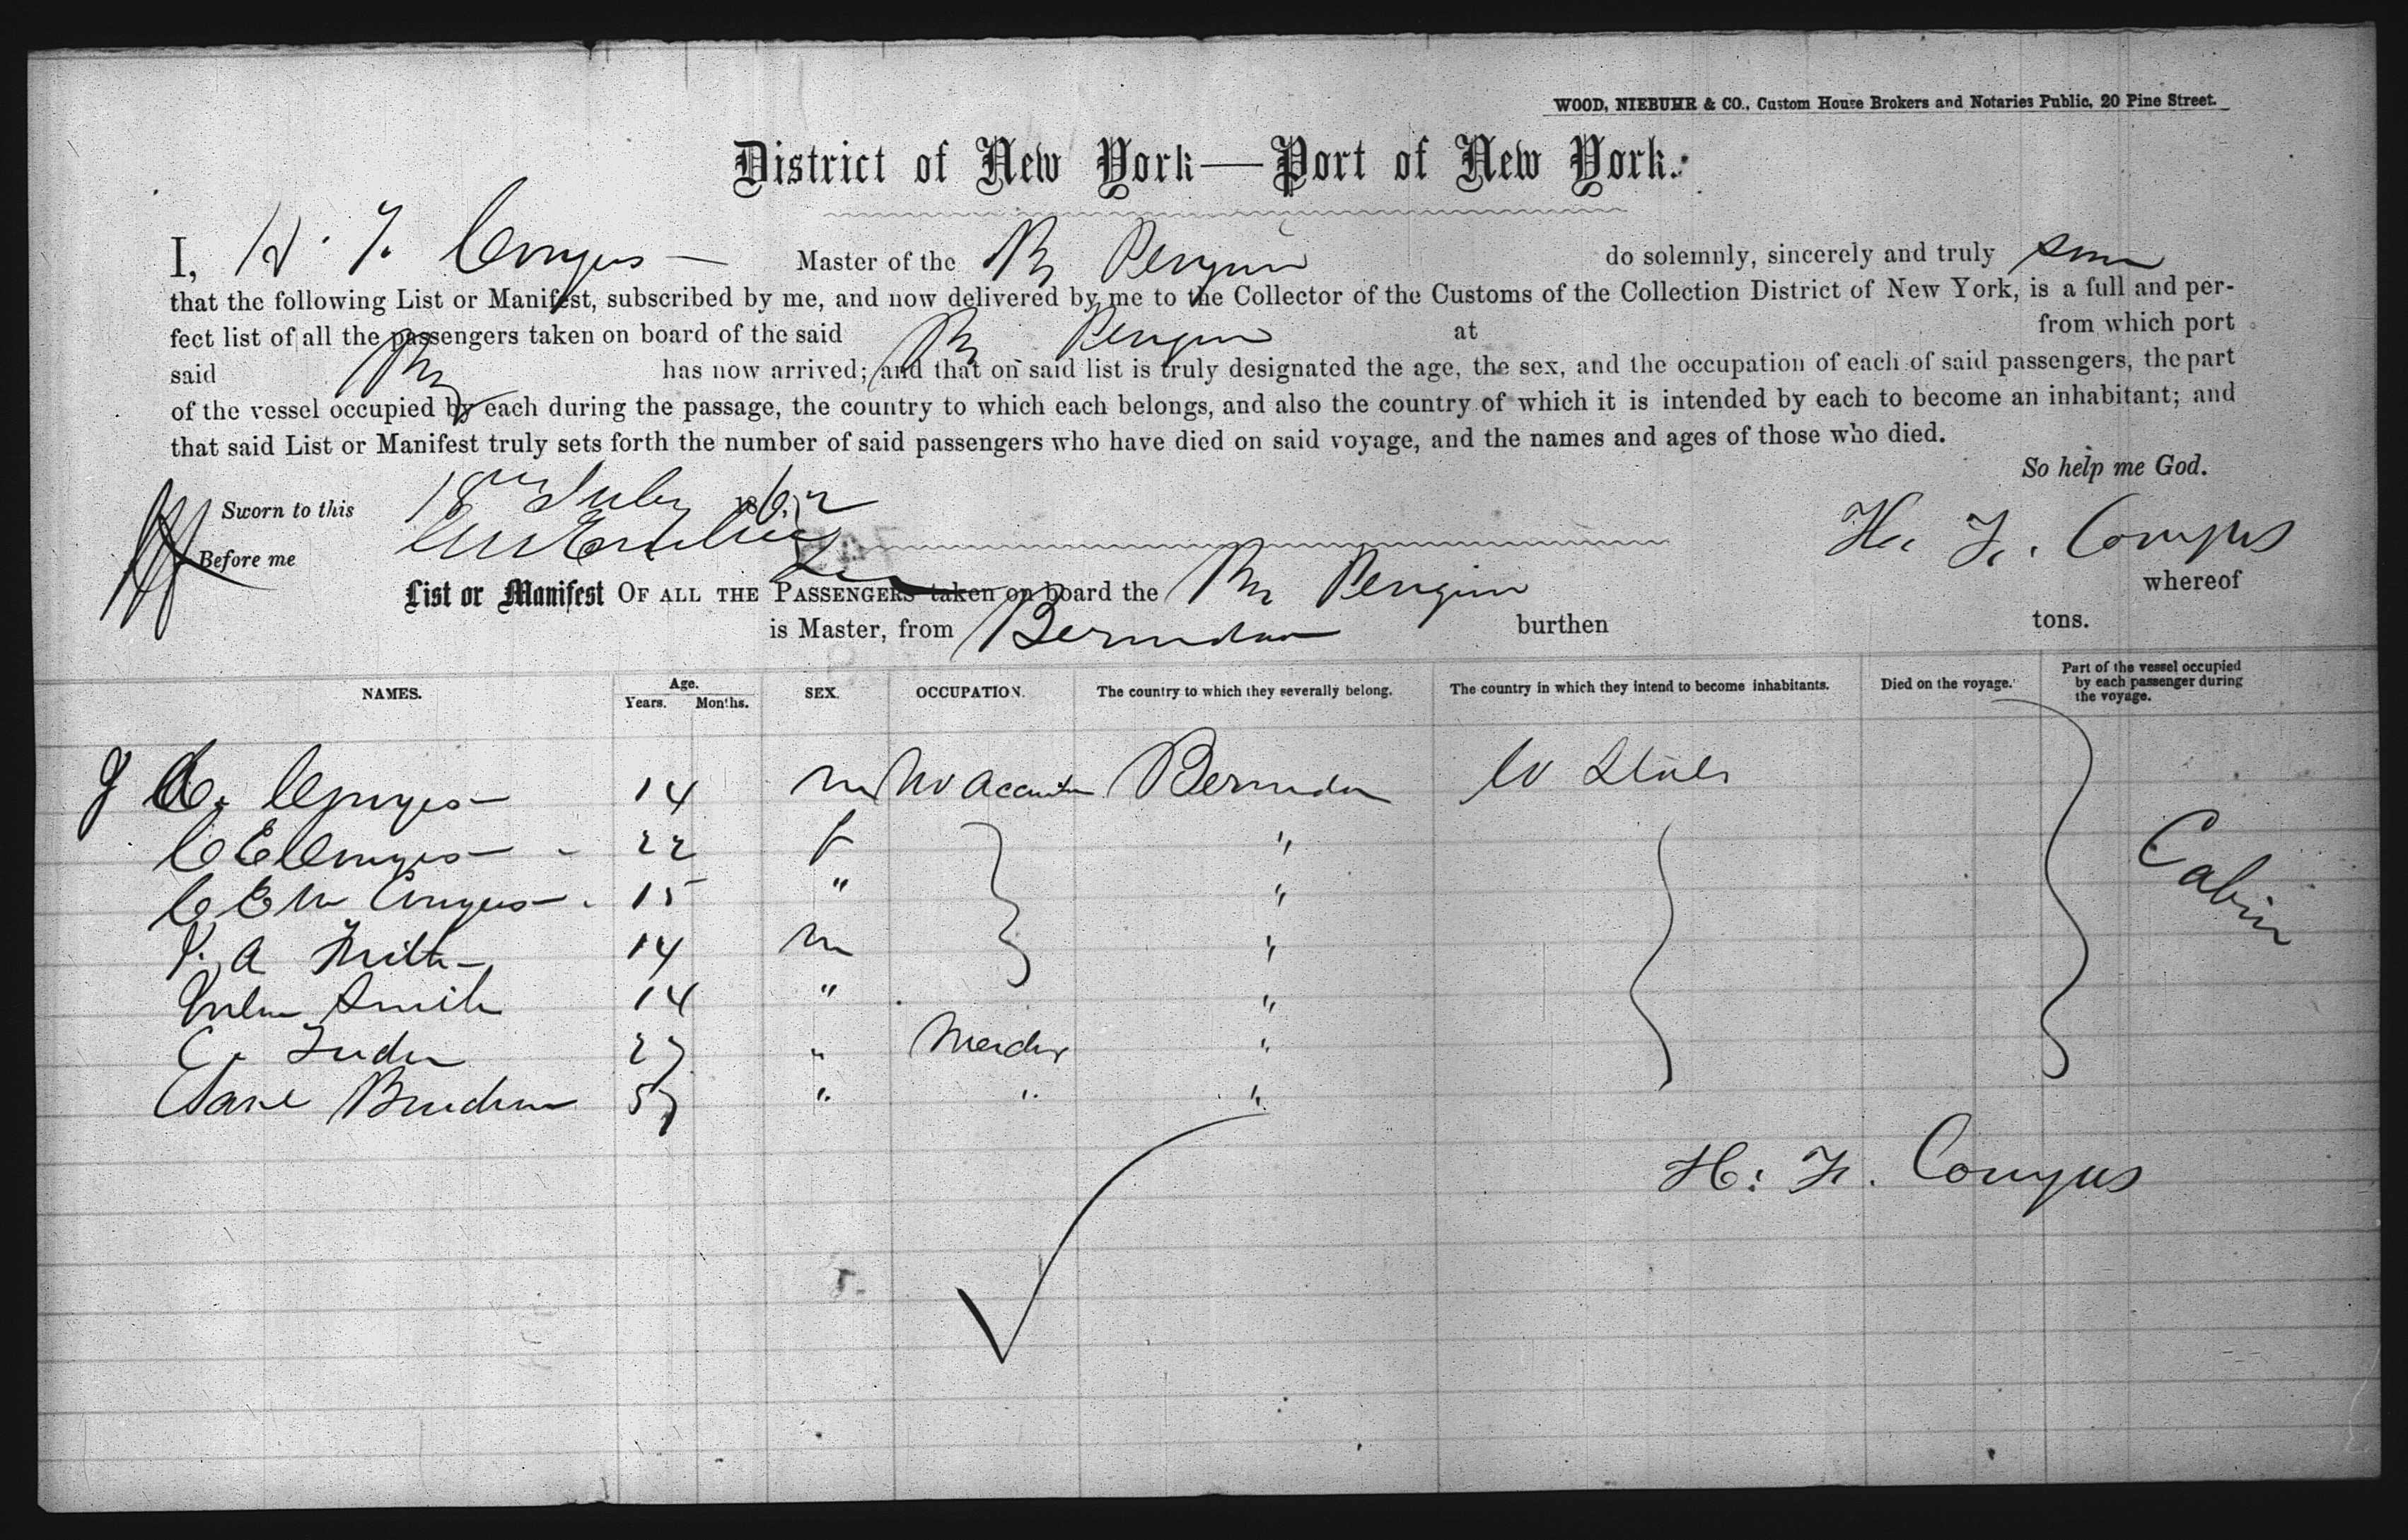 WOOD, NIEBUHR & CO., Custom House Brokers and Notaries Public, 20 Pine Street.
District of New York—Port of New York.
I, H. F. Conyers Master of the Br Penguin do solemnly, sincerely and truly swear
that the following List or Manifest, subscribed by me, and now delivered by me to the Collector of the Customs of the Collection District of New York, is a full and per-
fect list of all the passengers taken on board of the said Br Penguin at from which port
said Br has now arrived; and that on said list is truly designated the age, the sex, and the occupation of each of said passengers, the part
of the vessel occupied by each during the passage, the country to which each belongs, and also the country of which it is intended by each to become an inhabitant; and
that said List or Manifest truly sets forth the number of said passengers who have died on said voyage, and the names and ages of those who died.
So help me God.
Sworn to this 18th July 1862
Before me
H. F. Conyers
List or Manifest OF ALL THE PASSENGERS taken on board the Br Penguin whereof
is Master, from Bermuda burthen tons.
NAMES. Age. Years. Months. SEX. OCCUPATION. The country to which they severally belong. The country in which they intend to become inhabitants. Died on the voyage. Part of the vessel occupied by each passenger during the voyage.
Conyers 14 m Bermuda U States
C E Conyers 22 f "
C E M Conyers 15 " "
J. A Smith 14 m "
Smith 14 " "
C. Tudor 27 " "
57 " " "
Cabin
H. F. Conyers